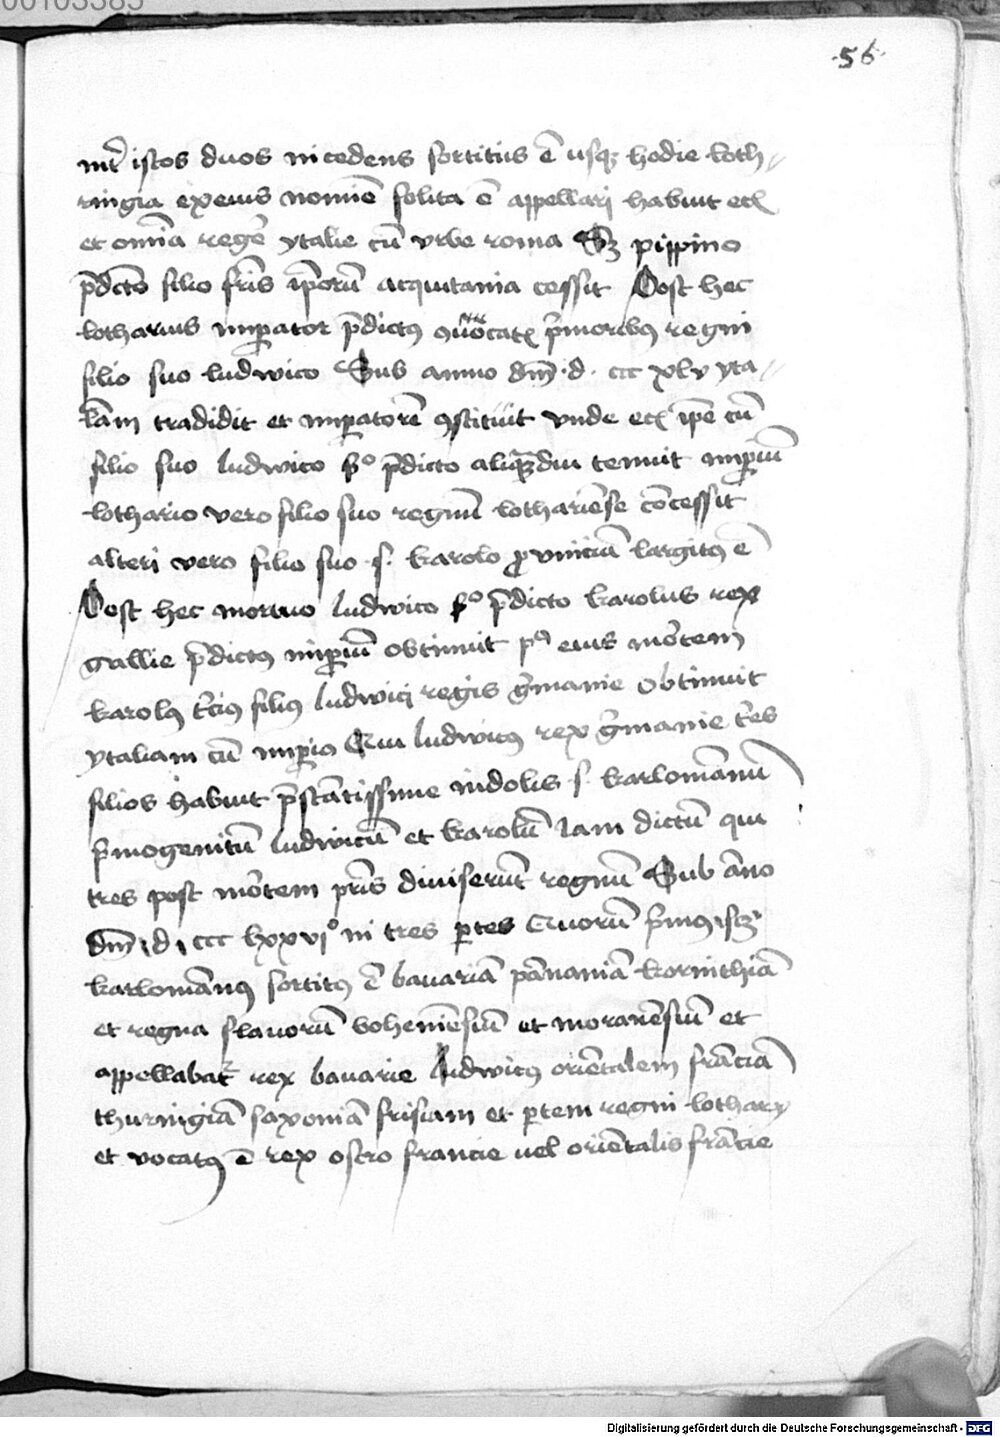 00103385
·56·
int̄ istos duos incedens sortitus ē usqꝫ hodie loth//
ringia ex eius nomīe solita ē appellari habuit etꝫ
et om̄ia regē ytalie cū vrbe roma Sꝫ pippino
p̄dc̄to filio fr̄is ip̄orū acquitania cessit Post hec
lotharius imꝑator p̄dictꝰ ꝯuocatꝭ p̄moribꝰ regni
filio suo ludwico Sub anno dn̄i ·d· ccc xlv yta//
liam tradidit et imꝑatorē ꝯstituit vnde etꝫ ip̄e cū
filio suo ludwico sᵒ p̄dicto aliqꝫdiu tenuit imꝑiū
lothario vero filio suo regnū lothariēse cōcessit
alteri vero filio suo ·s· karolo ꝓvinciā largitꝰ ē
Post hec mortuo ludwico sᵒ p̄dicto karolus rex
gallie p̄dictꝰ imꝑiū obtinuit pꝰ eius mōtem
karolꝰ t̄ciꝰ filiꝰ ludwici regis ḡmanie obtinuit
ytaliam cū imꝑio Qui ludwicꝰ rex ḡmanie t̄es
filios habuit p̄stātissime indolis ·s· karlomānū
p̄mogenitū ludwicū et karolū iam dictū qui
tres post mōtem pr̄is diuiserūt regnū Sub āno
dn̄i ·d· ccc lxxviᵒ in tres ꝑtes Quorū p̄mꝰ scꝫ
karlomānꝰ sortitꝰ ē bauariā pānaniā korinthiā
et regna slauorū bohemēsiū et morauēsiū et
appellabat᷑ rex bauarie Ludwicꝰ oriētalem frāciā
thuringiā saxoniā frisiam et ꝑtem regni lothary
et vocatꝰ ē rex ostro francie uel oriētalis frācie
Digitalisierung gefördert durch die Deutsche Forschungsgemeinschaft - DFG